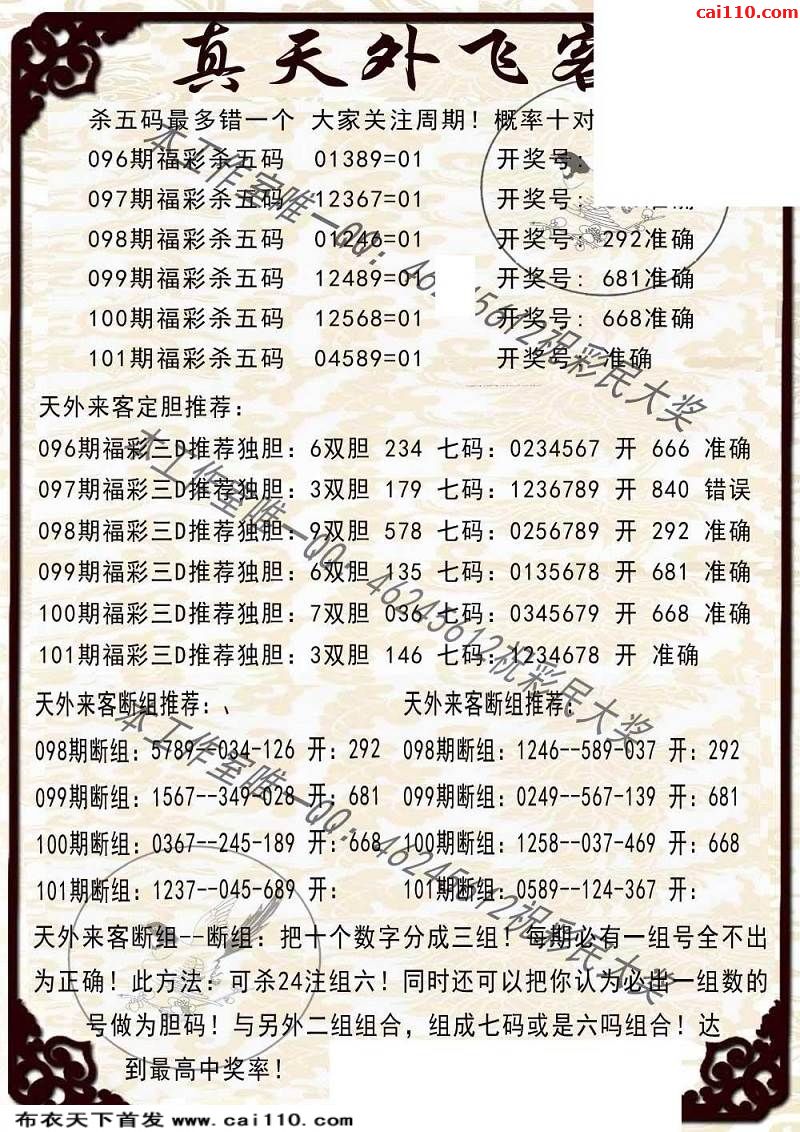 cai110.com
真天外飞客
杀五码最多错一个 大家关注周期！概率十对
096期福彩杀五码 01389=01 开奖号:
097期福彩杀五码 12367=01 开奖号: 准确
098期福彩杀五码 01246=01 开奖号: 292准确
099期福彩杀五码 12489=0 开奖号: 681准确
100期福彩杀五码 12568=01 开奖号: 668准确
101期福彩杀五码 04589=01 开奖号: 准确
天外来客定胆推荐:
096期福彩三D推荐独胆: 6双胆 234 七码: 0234567 开 666 准确
097期福彩三D推荐独胆: 3双胆 179 七码: 1236789 开 840 错误
098期福彩三D推荐独胆: 9双胆 578 七码: 0256789 开 292 准确
099期福彩三D推荐独胆: 6双胆 135 七码: 0135678 开 681 准确
100期福彩三D推荐独胆: 7双胆 036 七码: 0345679 开 668 准确
101期福彩三D推荐独胆: 3双胆 146 七码: 1234678 开 准确
天外来客断组推荐: 、 天外来客断组推荐:
098期断组: 5789--034-126 开: 292 098期断组: 1246--589-037 开: 292
099期断组: 1567--349-028 开: 681 099期断组: 0249--567-139 开: 681
100期断组: 0367--245-189 开: 668 100期断组: 1258--037-469 开: 668
101期断组: 1237--045-689 开: 101期断组: 0589--124-367 开:
天外来客断组--断组: 把十个数字分成三组！每期必有一组号全不出
为正确！此方法: 可杀24注组六！同时还可以把你认为必出一组数的
号做为胆码！与另外二组组合，组成七码或是六吗组合！达
到最高中奖率！
本工作室唯一QQ: 46245612祝彩民大奖
本工作室唯一QQ: 46245612祝彩民大奖
本工作室唯一QQ: 46245612祝彩民大奖
布衣天下首发 www.cai110.com